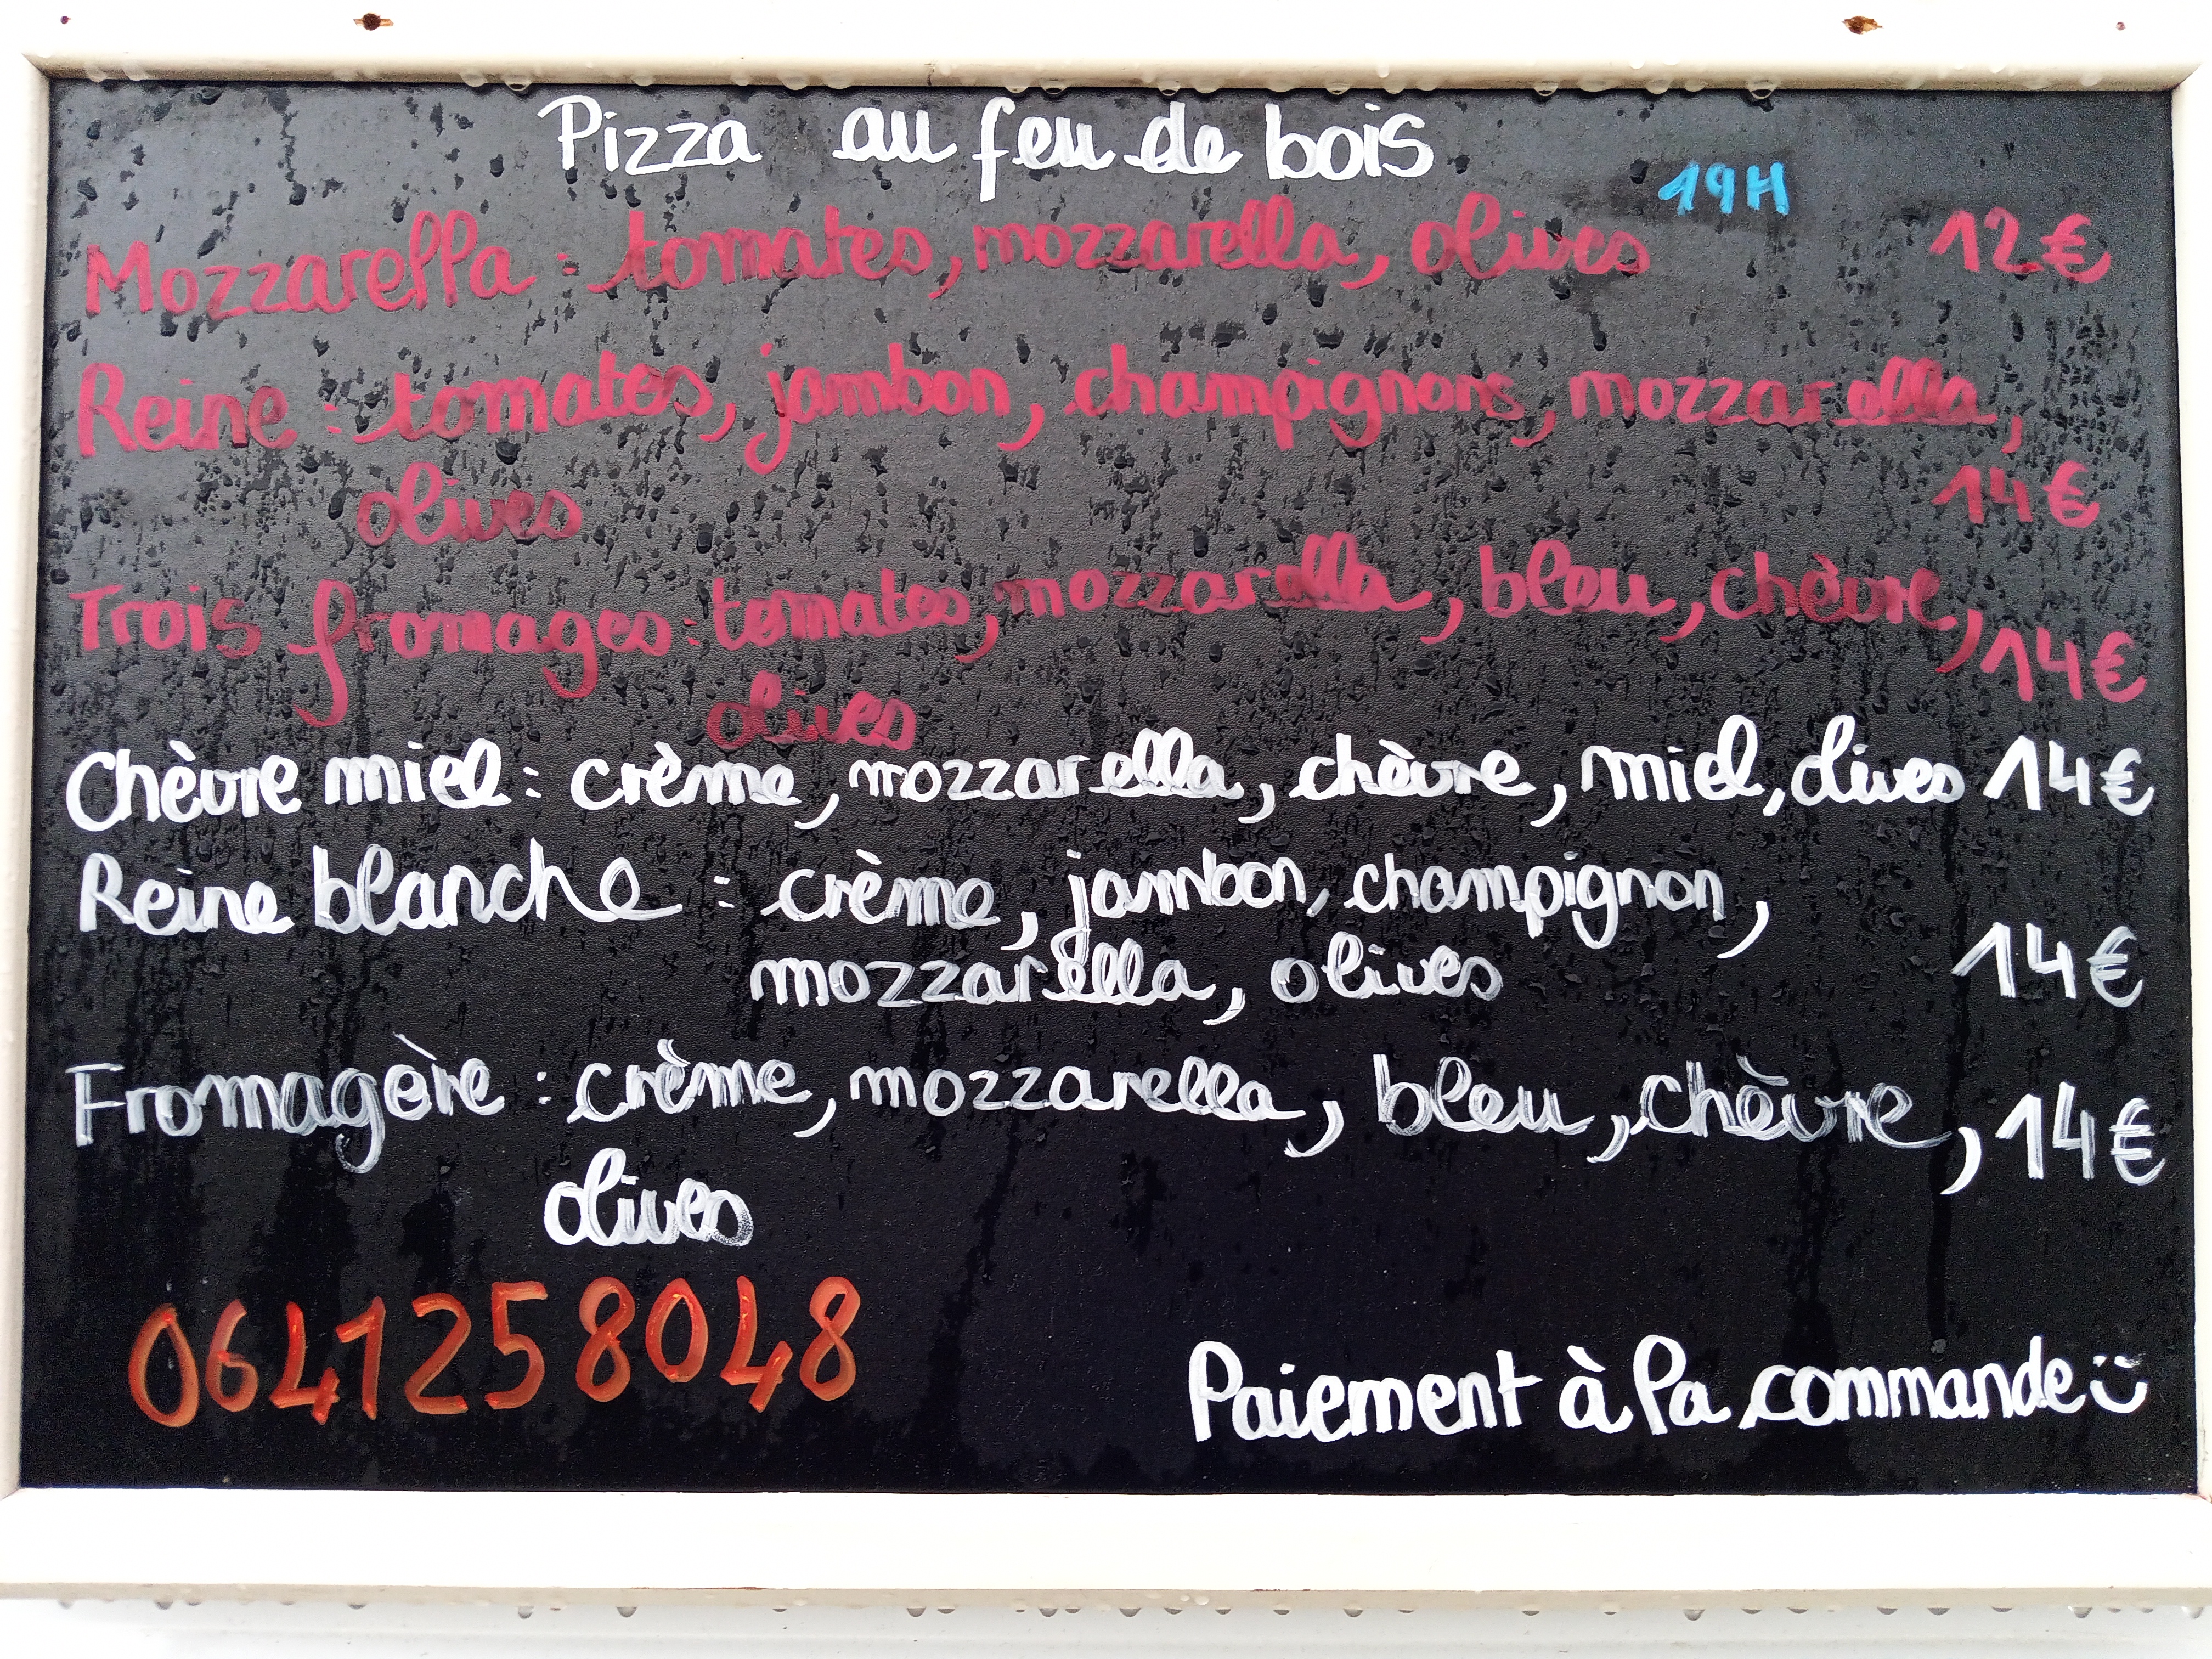 Pizza au feu de bois
19H
Mozzarella : tomates, mozzarella, olives 12€
Reine : tomates, jambon, champignons, mozzarella,
olives 14€
Trois fromages : tomates, mozzarella, bleu, chèvre, 14€
olives
Chèvre miel : crème, mozzarella, chèvre, miel, olives 14€
Reine blanche : crème, jambon, champignon,
mozzarella, olives 14€
Fromagère : crème, mozzarella, bleu, chèvre, 14€
olives
0641258048
Paiement à la commande :)